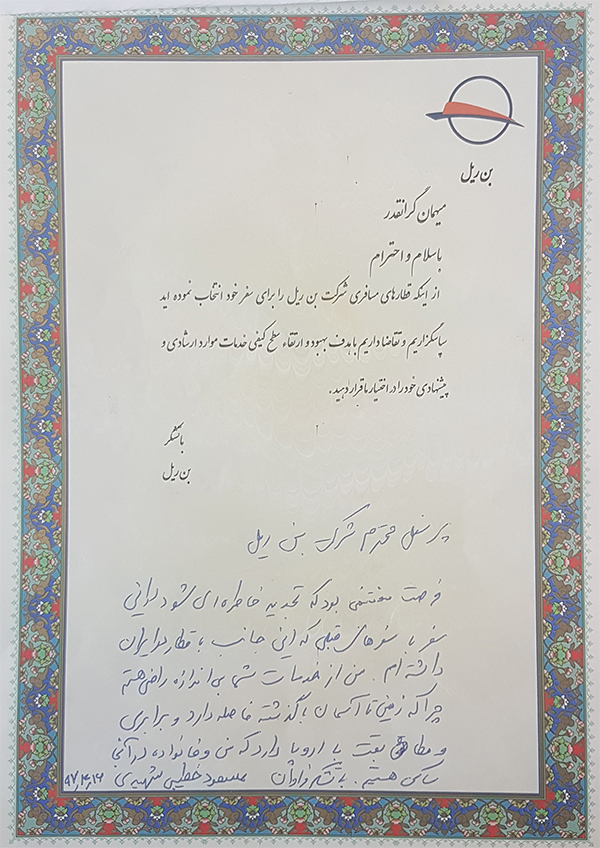 بن ریل
میهمان گرانقدر
با سلام و احترام
از اینکه قطارهای مسافری شرکت بن ریل را برای سفر خود انتخاب نموده اید
سپاسگزاریم و تقاضا داریم با هدف بهبود و ارتقاء سطح کیفی خدمات موارد ارشادی و
پیشنهادی خود را در اختیار ما قرار دهید.
با تشکر
بن ریل
پرسنل محترم شرکت بن ریل
فرصت مغتنمی بود که تجدید خاطره ای شود برای
سفر با سفرهای قبلی که این جانب با قطار در ایران
داشته ام. من از خدمات شما بی اندازه راضی هستم
چرا که زمین تا آسمان با گذشته فاصله دارد و برابری
و مطابقت با اروپا دارد که من و خانواده در آنجا
ساکن هستیم. با تشکر فراوان مسعود خطیبی شهیدی
۹۷،۴،۱۶